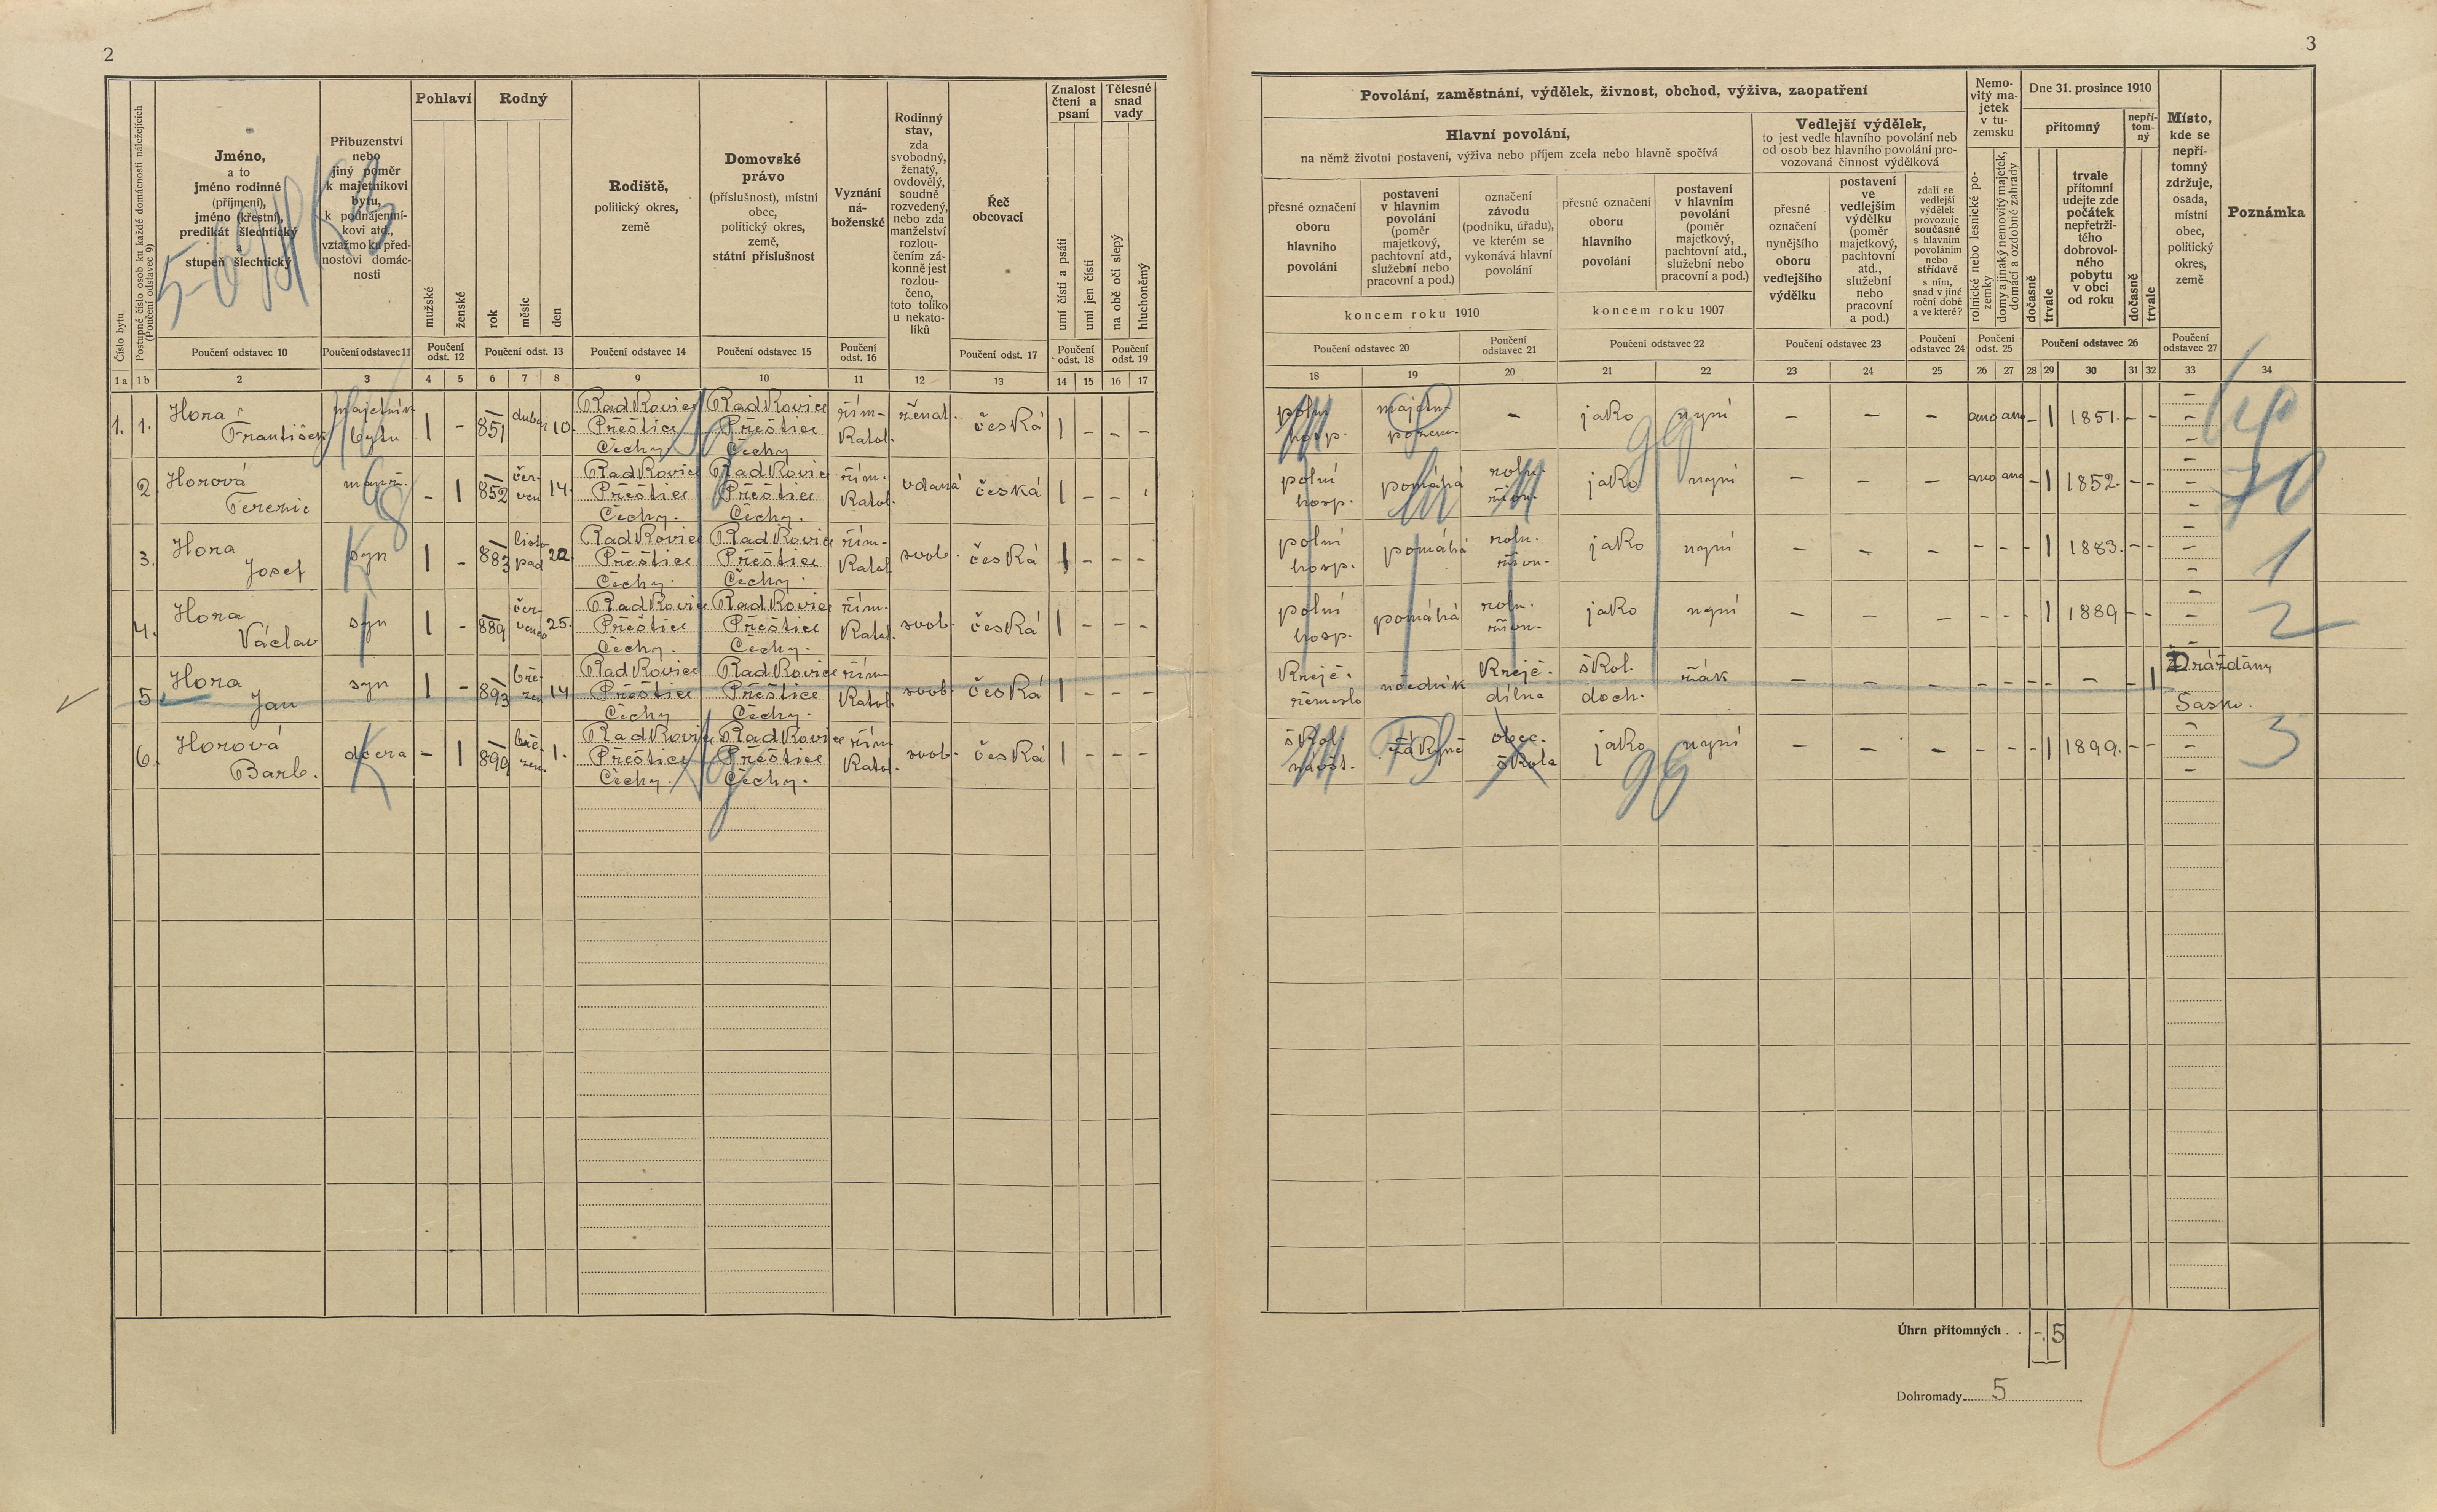 2
3
Číslo bytu
Postupné číslo osob ku každé domácnosti náležejících
(Poučení odstavec 9)
Jméno,
a to
jméno rodinné
(příjmení),
jméno (křestní),
predikát šlechtický
a
stupeň šlechtický
Příbuzenství
nebo
jiný poměr
k majetníkovi
bytu,
k podnájemní-
kovi atd.,
vztažmo ku před-
nostovi domác-
nosti
Pohlaví
mužské
ženské
Rodný
rok
měsíc
den
Rodiště,
politický okres,
země
Domovské
právo
(příslušnost), místní
obec,
politický okres,
země,
státní příslušnost
Vyznání
ná-
boženské
Rodinný
stav,
zda
svobodný,
ženatý,
ovdovělý,
soudně
rozvedený,
nebo zda
manželství
rozlou-
čením zá-
konně jest
rozlou-
čeno,
toto toliko
u nekato-
líků
Řeč
obcovací
Znalost
čtení a
psaní
umí čísti a psáti
umí jen čísti
Tělesné
snad
vady
na obě oči slepý
hluchoněmý
Poučení odstavec 10
Poučení odstavec 11
Poučení
odst. 12
Poučení odst. 13
Poučení odstavec 14
Poučení odstavec 15
Poučení
odst. 16
Poučení odst. 17
Poučení
odst. 18
Poučení
odst. 19
1 a 1 b 2 3 4 5 6 7 8 9 10 11 12 13 14 15 16 17
Povolání, zaměstnání, výdělek, živnost, obchod, výživa, zaopatření
Hlavní povolání,
na němž životní postavení, výživa nebo příjem zcela nebo hlavně spočívá
přesné označení
oboru
hlavního
povolání
postavení
v hlavním
povolání
(poměr
majetkový,
pachtovní atd.,
služební nebo
pracovní a pod.)
označení
závodu
(podniku, úřadu),
ve kterém se
vykonává hlavní
povolání
přesné označení
oboru
hlavního
povolání
postavení
v hlavním
povolání
(poměr
majetkový,
pachtovní atd.,
služební nebo
pracovní a pod.)
koncem roku 1910
koncem roku 1907
Vedlejší výdělek,
to jest vedle hlavního povolání neb
od osob bez hlavního povolání pro-
vozovaná činnost výdělková
přesné
označení
nynějšího
oboru
vedlejšího
výdělku
postavení
ve
vedlejším
výdělku
(poměr
majetkový,
pachtovní
atd.,
služební
nebo
pracovní
a pod.)
zdali se
vedlejší
výdělek
provozuje
současně
s hlavním
povoláním
nebo
střídavě
s ním,
snad v jiné
roční době
a ve které?
Nemo-
vitý ma-
jetek
v tu-
zemsku
rolnické nebo lesnické po-
zemky
domy a jinaký nemovitý majetek,
domácí a ozdobné zahrady
Dne 31. prosince 1910
přítomný
nepří-
tom-
ný
dočasně
trvale
trvale
přítomní
udejte zde
počátek
nepřetrži-
tého
dobrovol-
ného
pobytu
v obci
od roku
dočasně
trvale
Místo,
kde se
nepří-
tomný
zdržuje,
osada,
místní
obec,
politický
okres,
země
Poznámka
Poučení odstavec 20
Poučení
odstavec 21
Poučení odstavec 22
Poučení odstavec 23
Poučení
odstavec 24
Poučení
odst. 25
Poučení odstavec 26
Poučení
odstavec 27
18 19 20 21 22 23 24 25 26 27 28 29 30 31 32 33 34
1. 1. Hora
František
majetník
bytu
1 - 851 duben 10.
Radkovice
Přeštice
Čechy
Radkovice
Přeštice
Čechy
řím-
katol.
ženat. česká 1 - - -
poln.
hosp.
majetn.
pozem.
- jako nyní - - - ano ano - 1 1851. - -
2. Horová
Terezie
manž.
- 1 852 čer-
ven 14.
Radkovice
Přeštice
Čechy.
Radkovice
Přeštice
Čechy.
řím.
katol.
vdaná česká 1 - -
polní
hosp.
pomáhá
roln.
živn.
jako nyní - - - ano ano - 1 1852. - -
3. Hora
Josef
syn 1 - 883 listo
pad 22.
Radkovice
Přeštice
Čechy.
Radkovice
Přeštice
Čechy.
řím-
katol
svob. česká 1 - - -
polní
hosp.
pomáhá
roln.
živn.
jako nyní - - - - - - 1 1883. - -
1
4. Hora
Václav
syn 1 - 889 čer-
venec 25.
Radkovice
Přeštice
Čechy.
Radkovice
Přeštice
Čechy.
řím.
katol.
svob. česká 1 - - -
polní
hosp.
pomáhá
roln.
živn.
jako nyní - - - - - - 1 1889 - -
2
5 Hora
Jan
syn 1 - 893 bře-
zen 14
Radkovice
Přeštice
Čechy
Radkovice
Přeštice
Čechy.
řím
katol.
svob. česká 1 - - -
krejč.
řemeslo
učedník
krejč.
dílna
škol.
doch.
žák - - - - - - - - - 1
Drážďány
Sasko.
6. Horová
Barb.
dcera - 1 899 bře-
zen. 1.
Radkovice
Přeštice
Čechy.
Radkovice
Přeštice
Čechy.
řím
katol.
svob. česká 1 - - -
škol.
návšt.
žákyně
obec.
škola
jako nyní - - - - - - 1 1899. - -
3
Úhrn přítomných . . - 5
Dohromady 5